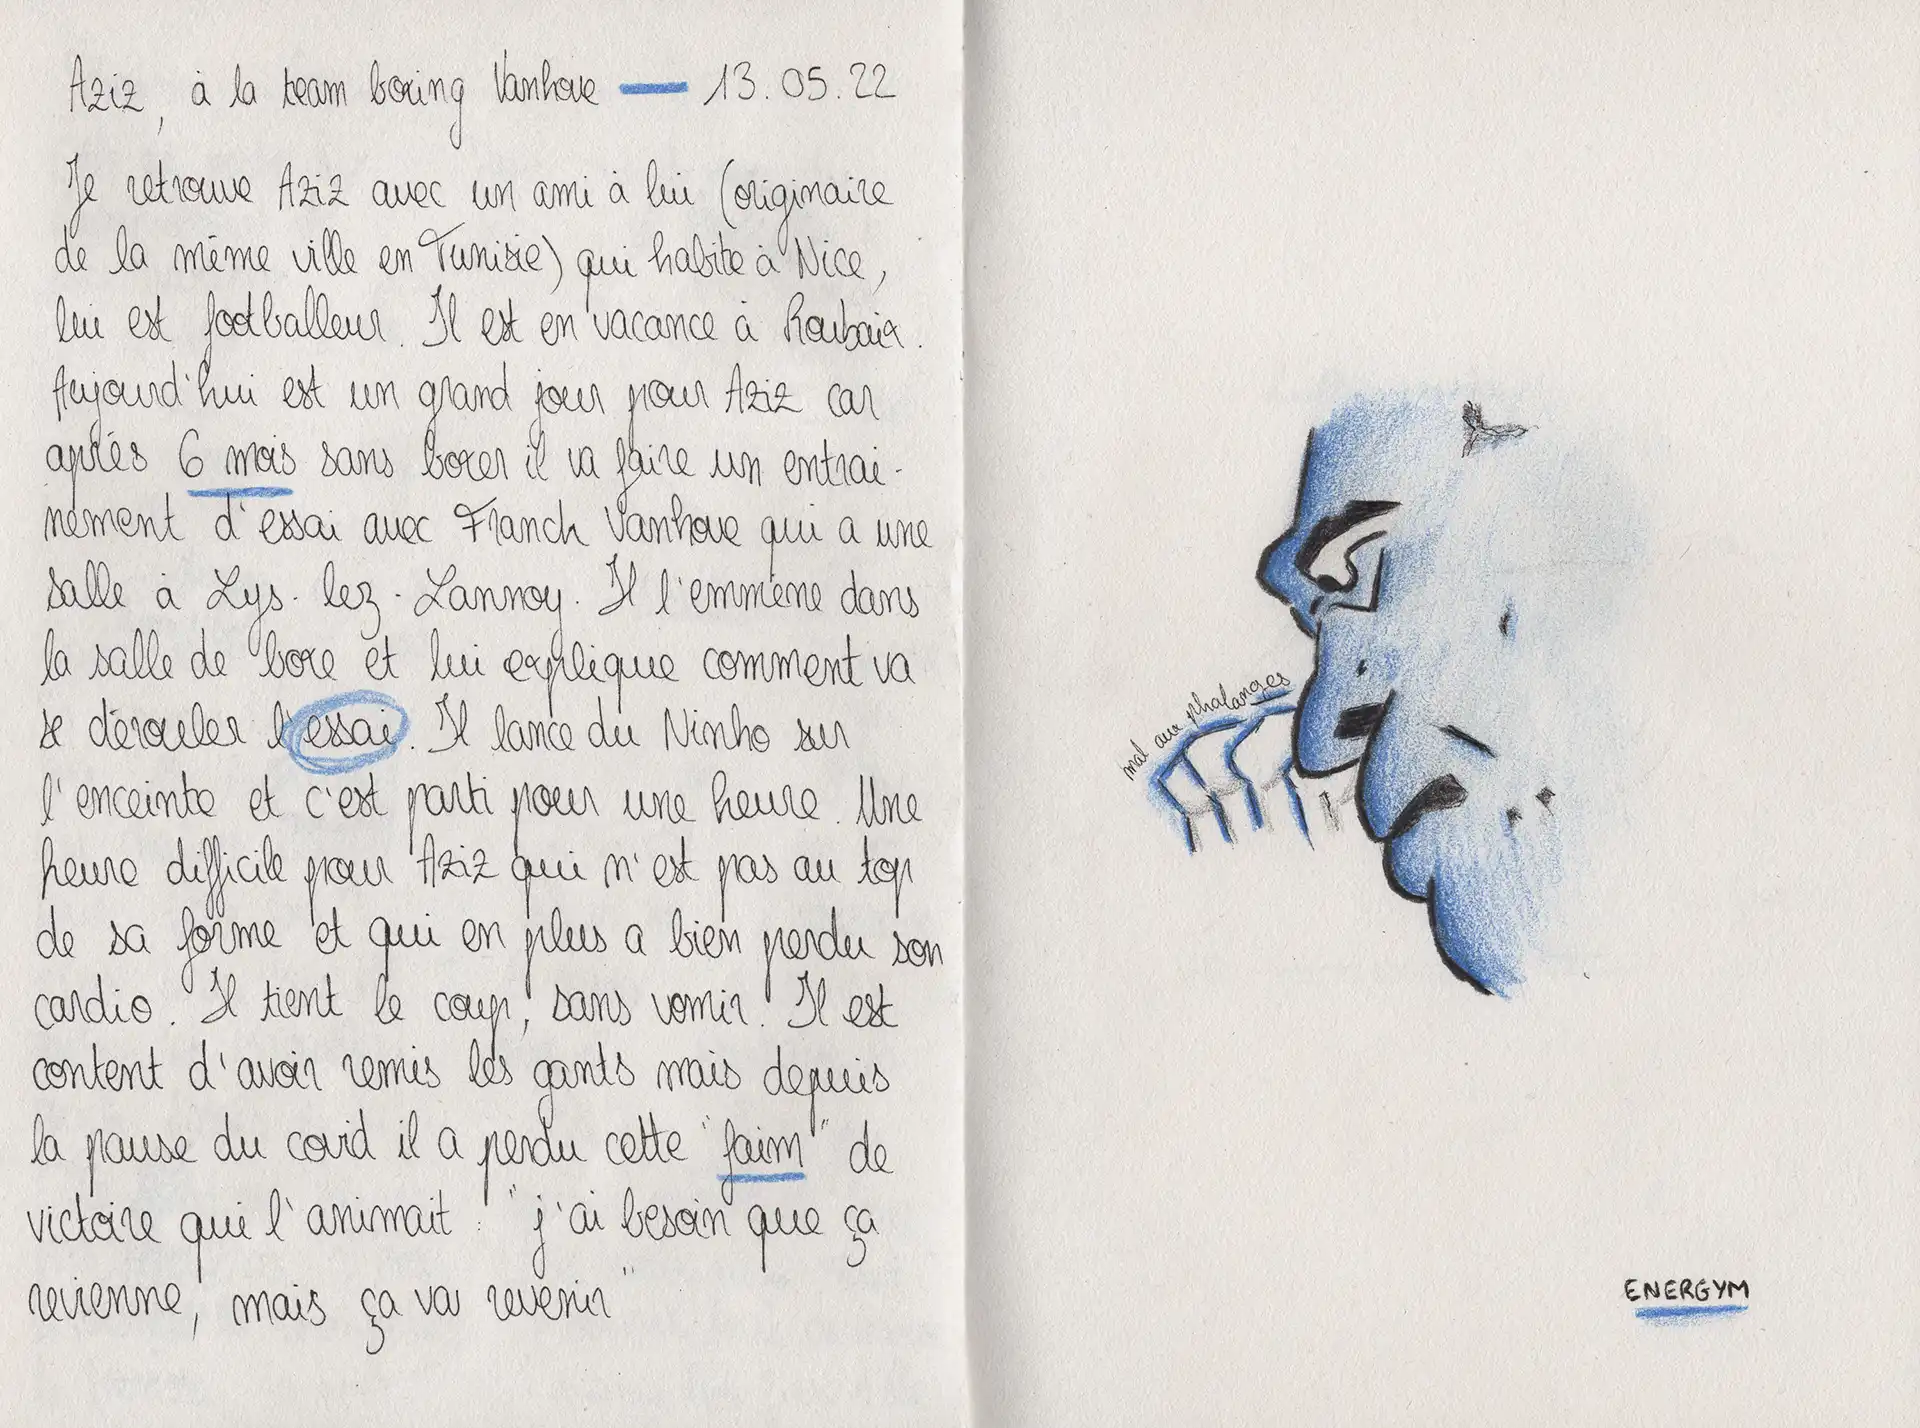 Aziz, à la team boxing Vanhove — 13.05.22
Je retrouve Aziz avec un ami à lui (originaire
de la même ville en Tunisie) qui habite à Nice,
lui est footballeur. Il est en vacance à Roubaix.
Aujourd'hui est un grand jour pour Aziz car
après 6 mois sans boxer il va faire un entrai-
nement d'essai avec Franck Vanhove qui a une
salle à Lys-lez-Lannoy. Il l'emmène dans
la salle de boxe et lui explique comment va
se dérouler l'essai. Il lance du Ninho sur
l'enceinte et c'est parti pour une heure. Une
heure difficile pour Aziz qui n'est pas au top
de sa forme et qui en plus a bien perdu son
cardio. Il tient le coup, sans vomir. Il est
content d'avoir remis les gants mais depuis
la pause du covid il a perdu cette "faim" de
victoire qui l'animait : "j'ai besoin que ça
revienne, mais ça va revenir"
mal aux phalanges
ENERGYM